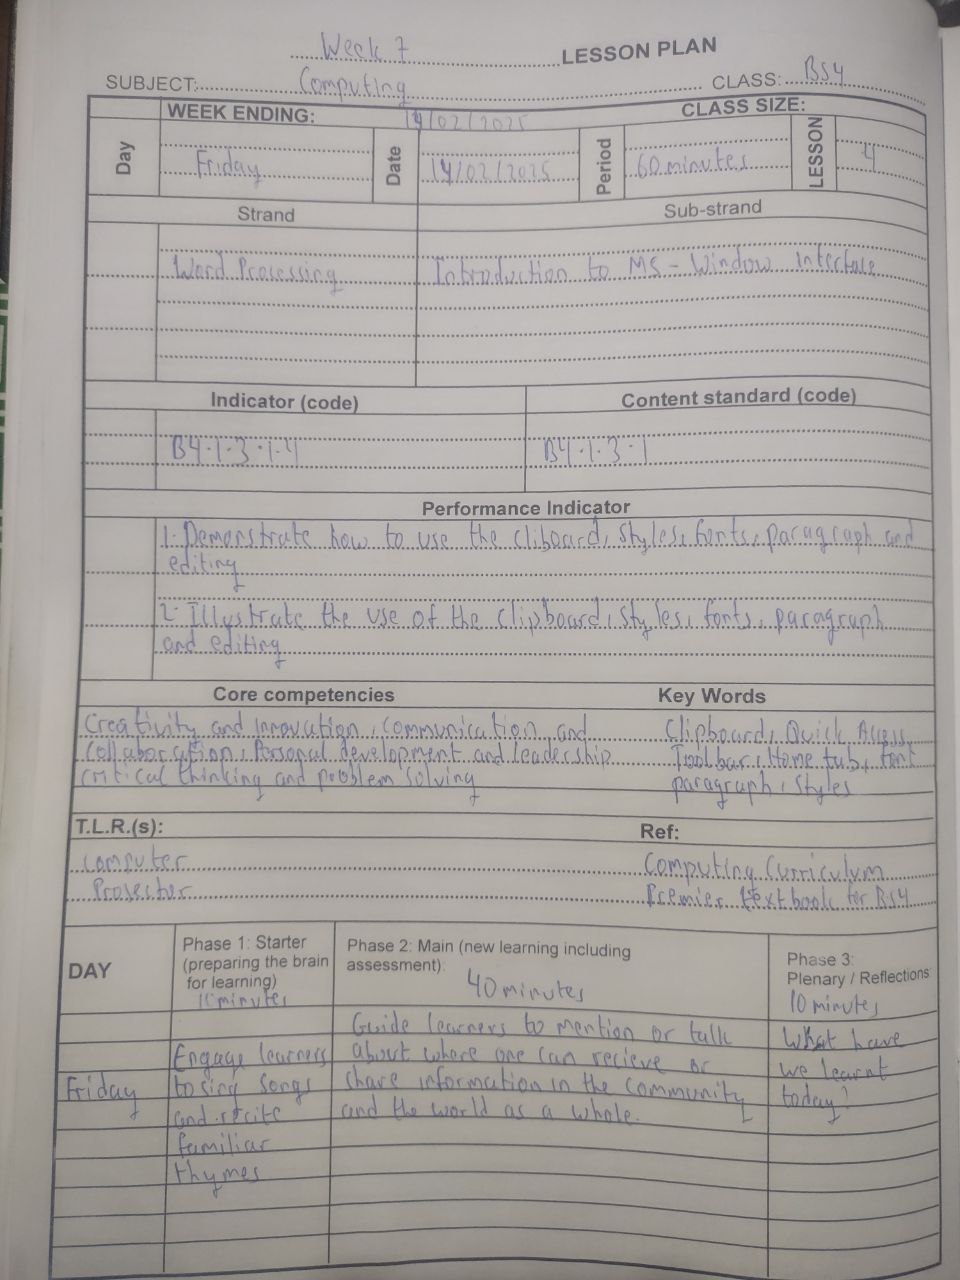 Week 7 LESSON PLAN
SUBJECT: Computing CLASS: BS4
WEEK ENDING: 14/02/2025 CLASS SIZE:
Day Friday Date 14/02/2025 Period 60 minutes LESSON 4
Strand Sub-strand
Word Processing Introduction to MS-Window interface
Indicator (code) Content standard (code)
B4.1.3.1.4 B4.1.3.1
Performance Indicator
1. Demonstrate how to use the cliboard, styles, fonts, paragraph and
editing
2. Illustrate the use of the clipboard, styles, fonts, paragraph
and editing
Core competencies Key Words
Creativity and innovation, communication and Clipboard, Quick Access
collaboration, Personal development and leadership Toolbar, Home tub, font
critical thinking and problem solving paragraph, styles
T.L.R.(s): Ref:
computer Computing Curriculum
Prosecter Premier textbook for BS4
DAY
Phase 1: Starter
(preparing the brain
for learning)
10 minutes
Phase 2: Main (new learning including
assessment)
40 minutes
Phase 3:
Plenary / Reflections
10 minutes
Friday
Engage learners
to sing songs
and recite
familiar
rhymes
Guide learners to mention or talk
about where one can recieve or
share information in the community
and the world as a whole.
What have
we learnt
today?